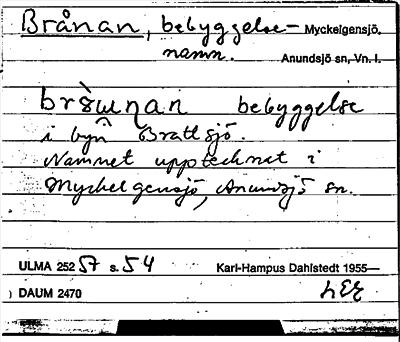 Brånan, bebyggelse- Myckelgensjö,
namn. Anundsjö sn, Vn. I.
bebyggelse
i byn Brattsjö.
Namnet upptecknat i
Myckelgensjö, Anundsjö sn.
ULMA 252 57 s. 54 Karl-Hampus Dahlstedt 1955—
DAUM 2470